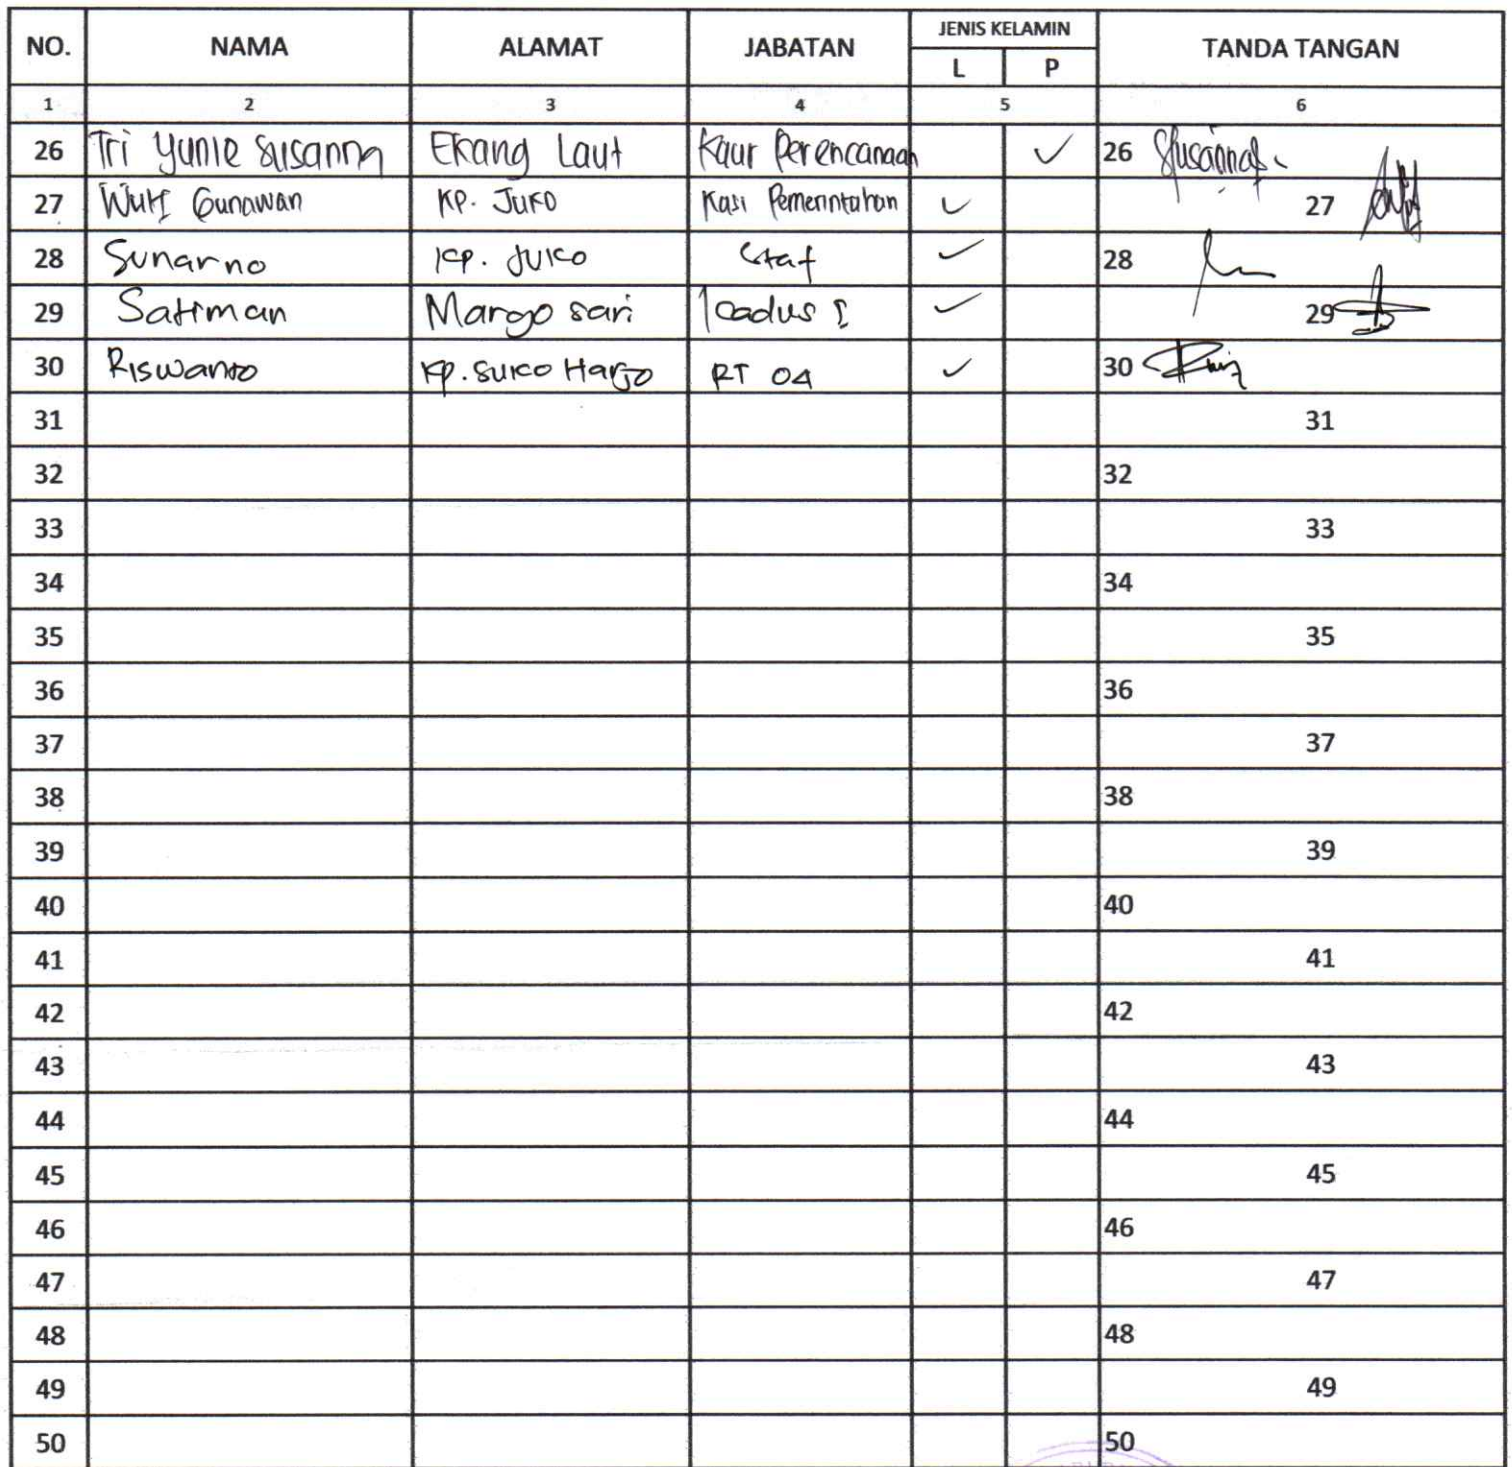 NO. NAMA ALAMAT JABATAN JENIS KELAMIN TANDA TANGAN
L P
1 2 3 4 5 6
26 Tri Yunie Susanna Ekang Laut Kaur Perencanaan ✓ 26
27 Gunawan KP. Juko Kasi Pemerintahan ✓ 27
28 Sunarno KP. Juko Staf ✓ 28
29 Satiman Margo sari kadus I ✓ 29
30 Riswanto KP. Suko Harjo RT 04 ✓ 30
31 31
32 32
33 33
34 34
35 35
36 36
37 37
38 38
39 39
40 40
41 41
42 42
43 43
44 44
45 45
46 46
47 47
48 48
49 49
50 50